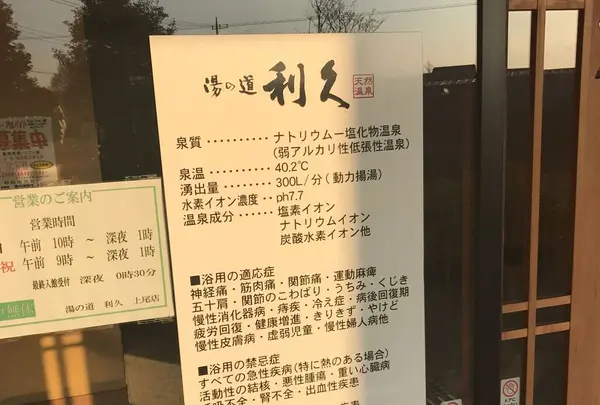 湯の道 利久 天然温泉
泉質 ・・・・・・・・・・ ナトリウムー塩化物温泉
(弱アルカリ性低張性温泉)
泉温 ・・・・・・・・・・ 40.2℃
湧出量 ・・・・・・・・ 300L/分(動力揚湯)
水素イオン濃度 ・・ ph7.7
温泉成分 ・・・・・・ 塩素イオン
ナトリウムイオン
炭酸水素イオン他
■浴用の適応症
神経痛・筋肉痛・関節痛・運動麻痺
五十肩・関節のこわばり・うちみ・くじき
慢性消化器病・痔疾・冷え症・病後回復期
疲労回復・健康増進・きりきず・やけど
慢性皮膚病・虚弱児童・慢性婦人病他
■浴用の禁忌症
すべての急性疾病(特に熱のある場合)
活動性の結核・悪性腫瘍・重い心臓病
呼吸不全・腎不全・出血性疾患
営業のご案内
営業時間
午前 10時 ～ 深夜 1時
祝 午前 9時 ～ 深夜 1時
最終入館受付 深夜 0時30分
湯の道 利久 上尾店